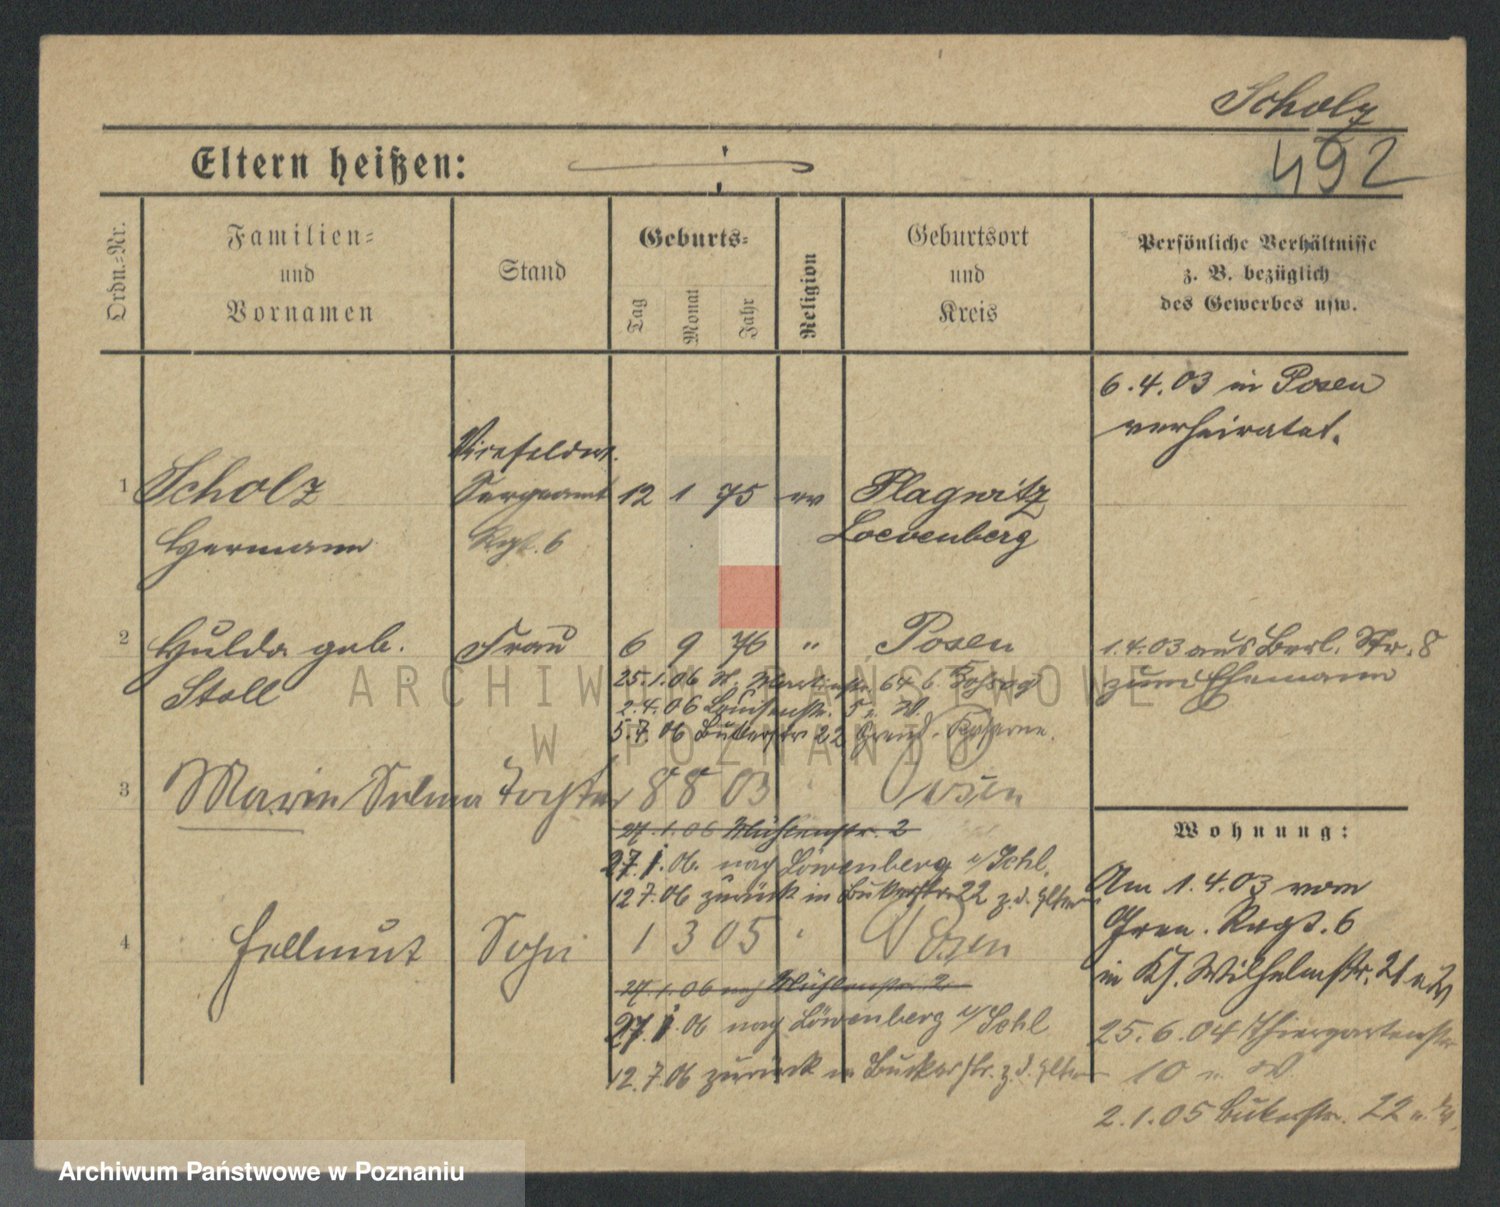 Scholz
Eltern heißen:
492
Ordn.-Nr.
Familien-
und
Vornamen
Stand
Geburts-
Tag
Monat
Jahr
Religion
Geburtsort
und
Kreis
Persönliche Verhältnisse
z. B. bezüglich
des Gewerbes usw.
6.4.03 in Posen
verheiratet.
Vizefeldw.
1 Scholz Sergeant 12 1 75 ev Plagwitz
Hermann Rgt. 6 Loewenberg
2 Hulda geb. Frau 6 9 76 " Posen
Stoll
1.4.03 aus Berl. Str. 8
zum Ehemann
25.1.06 St. Martinstr. 64 b.
2.4.06 5 n. W.
5.7.06 Bukerstr 22 Grend. Kaserne.
3 Marie Selma Tochter 8 8 03 " Posen
27.1.06 Mühlenstr. 2
27.1.06. nach Löwenberg i/Schl.
12.7.06 zurück in Bukerstr. 22 z. d. Eltern
4 Hellmut Sohn 1 3 05 " Posen
27.1.06 nach Mühlenstr. 2
27.1.06 nach Löwenberg i/Schl
12.7.06 zurück in Bukerstr. z. d. Eltern
Wohnung:
Am 1.4.03 vom
Gren. Regt. 6
in Kl. Wilhelmstr. 21
25.6.04 Thiergartenstr
10 n. W.
2.1.05 Bukerstr. 22 n. W.
ARCHIWUM PAŃSTWOWE
W POZNANIU
Archiwum Państwowe w Poznaniu